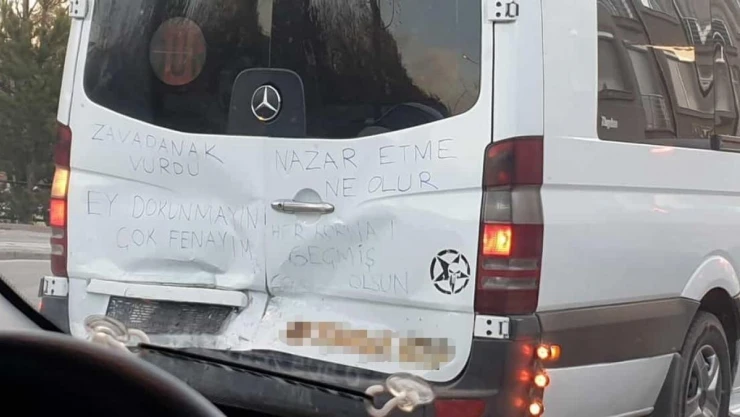 ZAVADANAK
VURDU
EY DOKUNMAYIN!
ÇOK FENAYIM
NAZAR ETME
NE OLUR
GEÇMİŞ
OLSUN